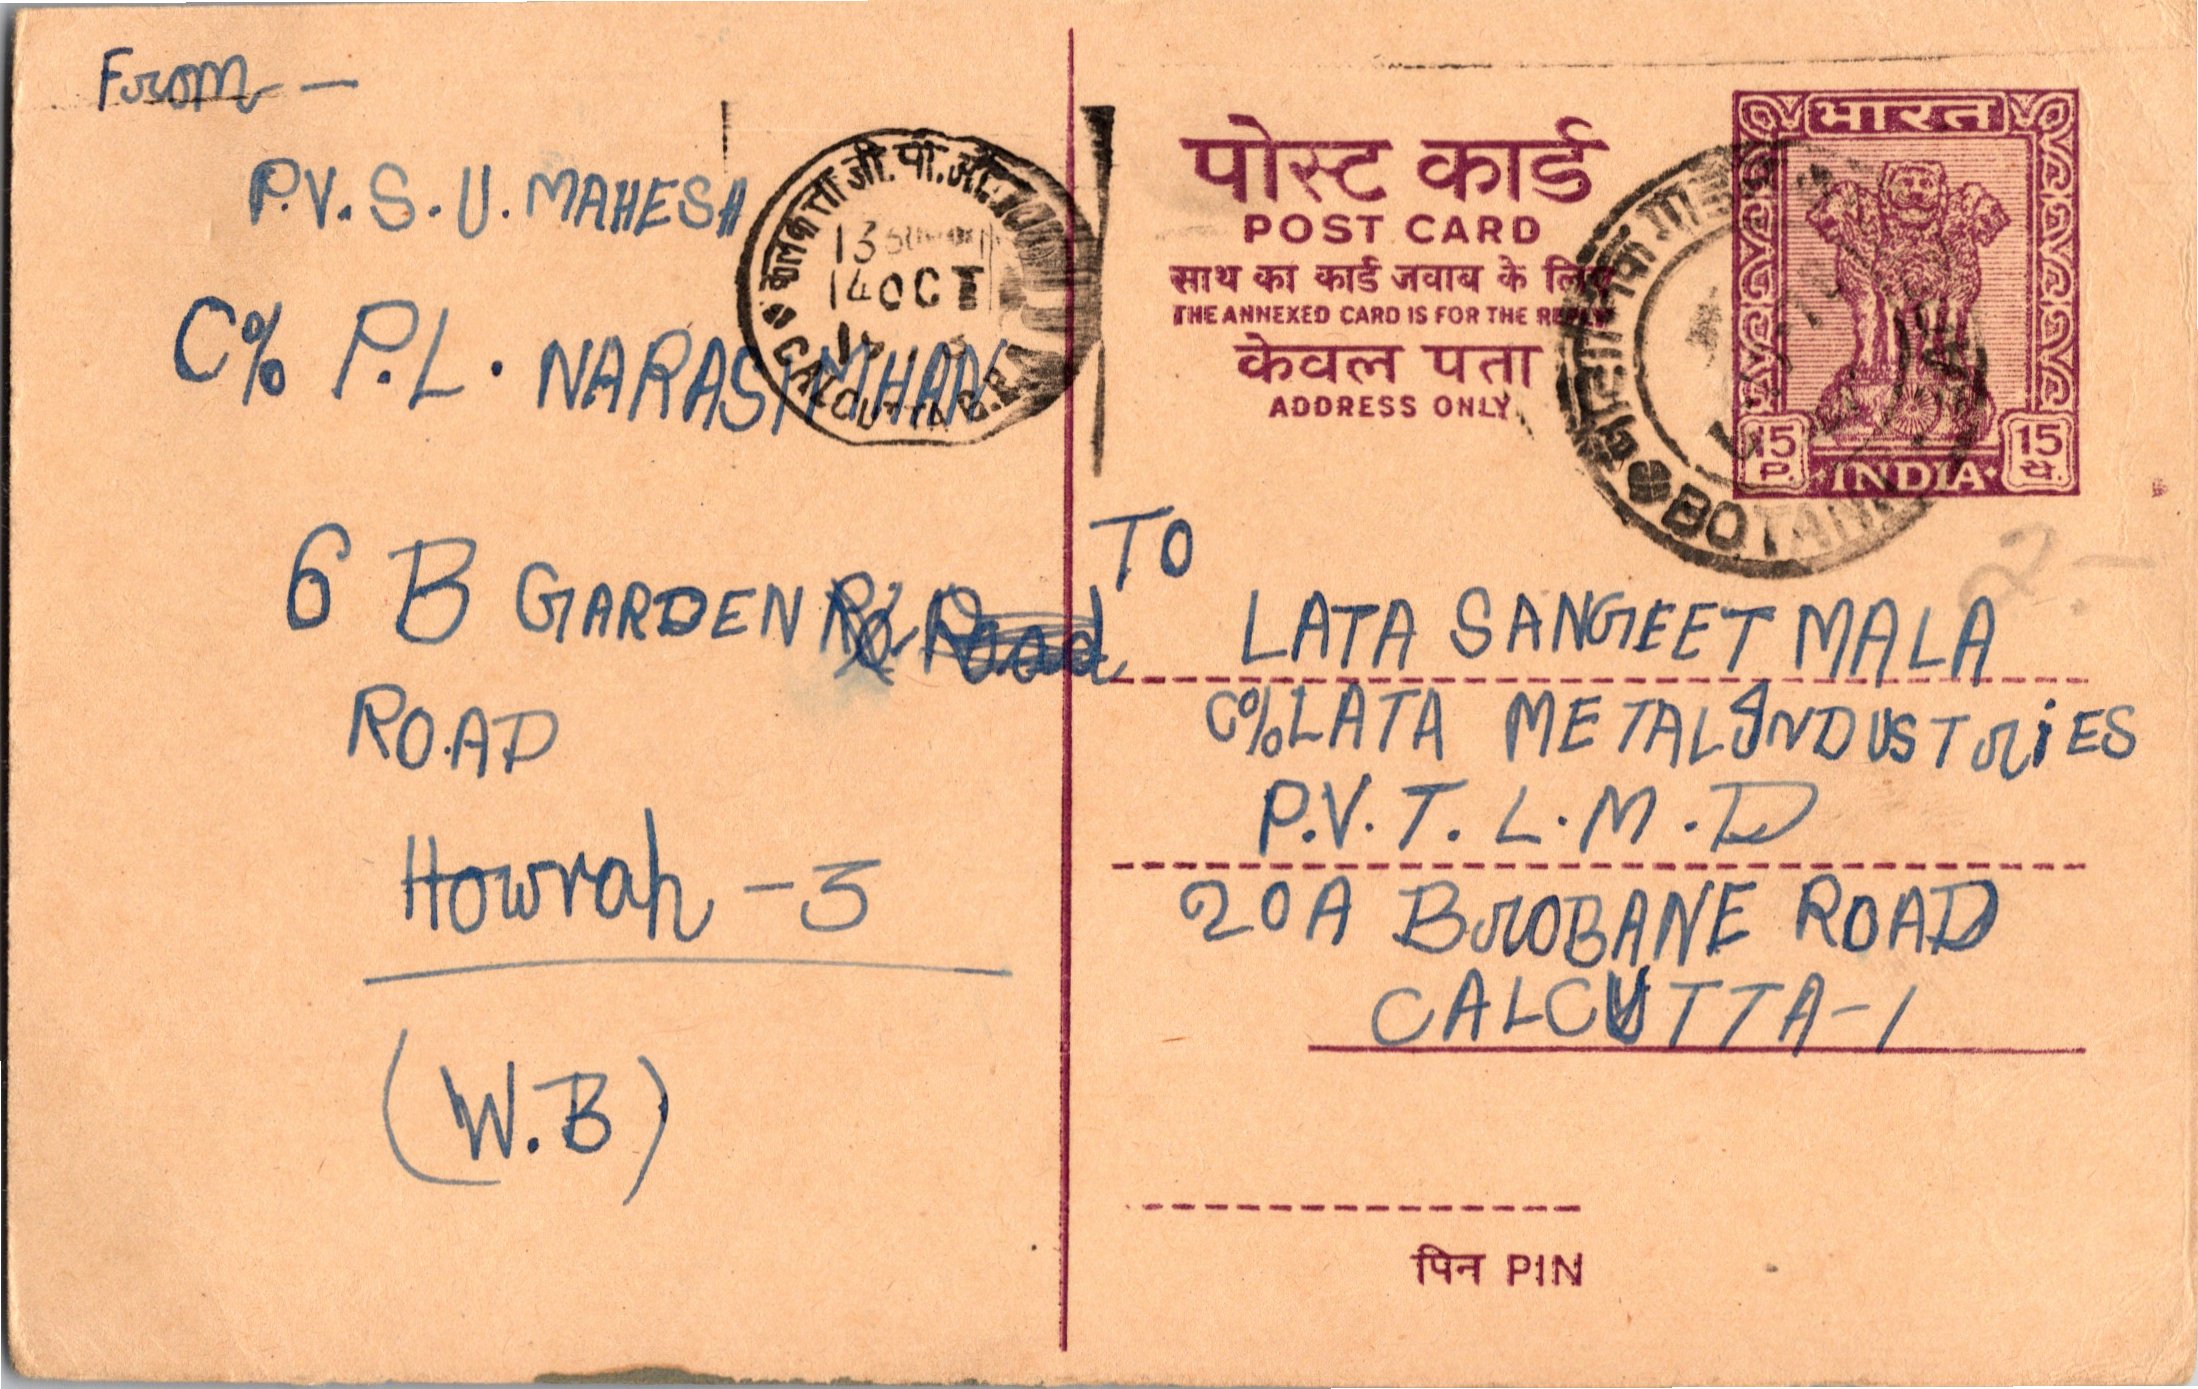 From -
P.V.S.U. MAHESH
C% P.L. NARASIMHAN
6 B GARDEN
ROAD
Howrah - 3
(W.B)
कलकत्ता जी.पी.ओ.
14 OCT
CALCUTTA G.P.
पोस्ट कार्ड
POST CARD
साथ का कार्ड जवाब के लिए
THE ANNEXED CARD IS FOR THE REPLY
केवल पता
ADDRESS ONLY
भारत
15 P.
INDIA
15 पै.
BOTANI
2.-
TO
LATA SANGEET MALA
C% LATA METAL INDUSTriES
P.V.T. L.M.D
20A BrOBANE ROAD
CALCUTTA-1
पिन PIN